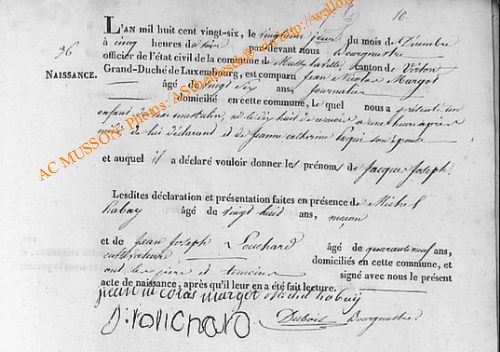 10.
36
NAISSANCE.
L'AN mil huit cent vingt-six, le vingtième jour du mois de Décembre
à cinq heures du soir par-devant nous Bourgmestre
officier de l'état civil de la commune de Mussy la ville, Kanton de Virton
Grand-Duché de Luxembourg, est comparu Jean Nicolas Margot
âgé de vingt six ans, Journalier
domicilié en cette commune, le quel nous a présenté un
enfant du sexe masculin, né le dix huit de ce mois à une heure après
midi de lui déclarant et de Jeanne Catherine son épouse
et auquel il a déclaré vouloir donner les prénoms de Jacque Joseph.
Lesdites déclaration et présentation faites en présence de Michel
habay âgé de vingt huit ans, maçon
et de Jean Joseph Louchard âgé de quarante neuf ans,
cultivateur domiciliés en cette commune, et
ont les père et témoins signé avec nous le présent
acte de naissance, après qu'il leur en a été fait lecture.
jean nicolas margot Michel habay
J: j: louchard
Dubois Bourgmestre
AC MUSSON. Photos: http://wallo